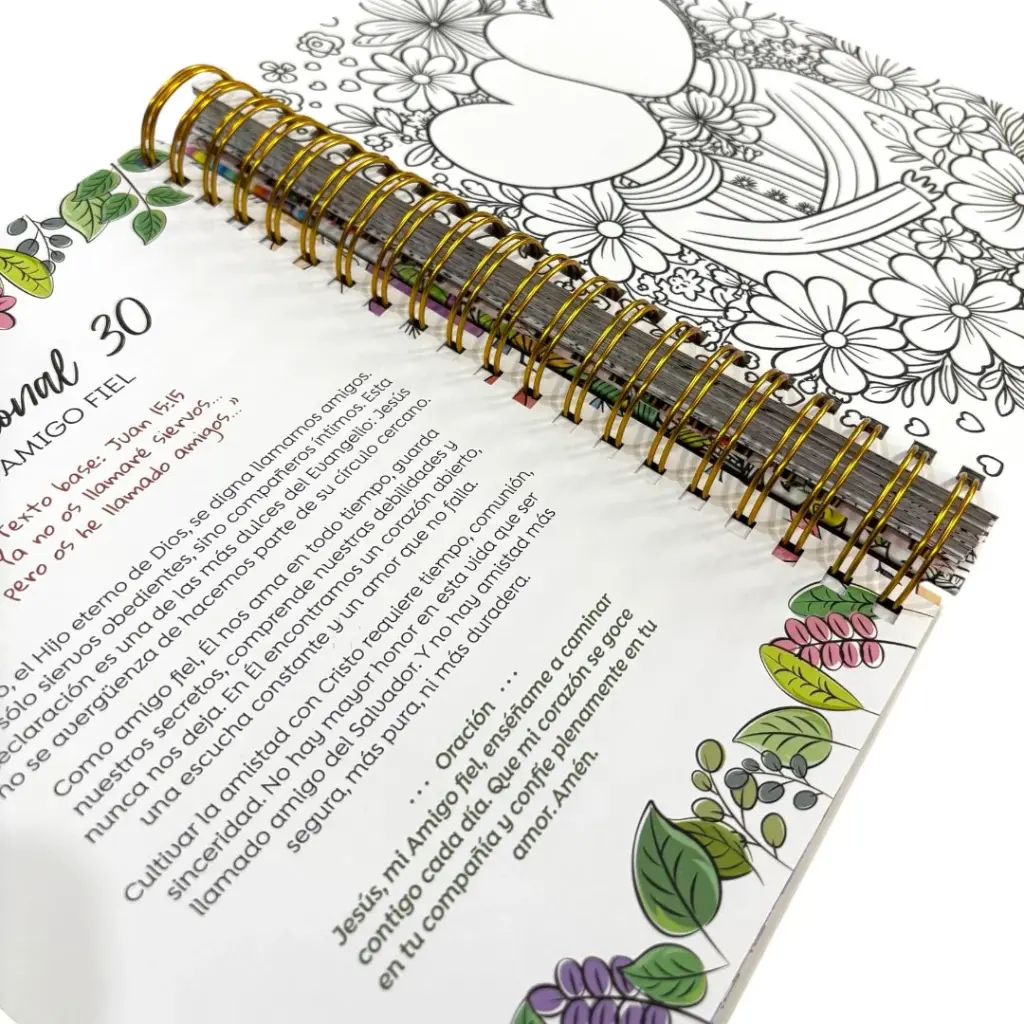 30
AMIGO FIEL
Texto base: Juan 15:15
Ya no os llamaré siervos...
pero os he llamado amigos..."
el Hijo eterno de Dios, se digna llamarnos amigos.
sólo siervos obedientes, sino compañeros íntimos. Esta
es una de las más dulces del Evangelio: Jesús
no se avergüenza de hacernos parte de su círculo cercano.
Como amigo fiel, Él nos ama en todo tiempo, guarda
nuestros secretos, comprende nuestras debilidades y
nunca nos deja. En Él encontramos un corazón abierto,
una escucha constante y un amor que no falla.
Cultivar la amistad con Cristo requiere tiempo, comunión,
sinceridad. No hay mayor honor en esta vida que ser
llamado amigo del Salvador. Y no hay amistad más
segura, más pura, ni más duradera.
... Oración ...
Jesús, mi Amigo fiel, enséñame a caminar
contigo cada día. Que mi corazón se goce
en tu compañía y confíe plenamente en tu
amor. Amén.